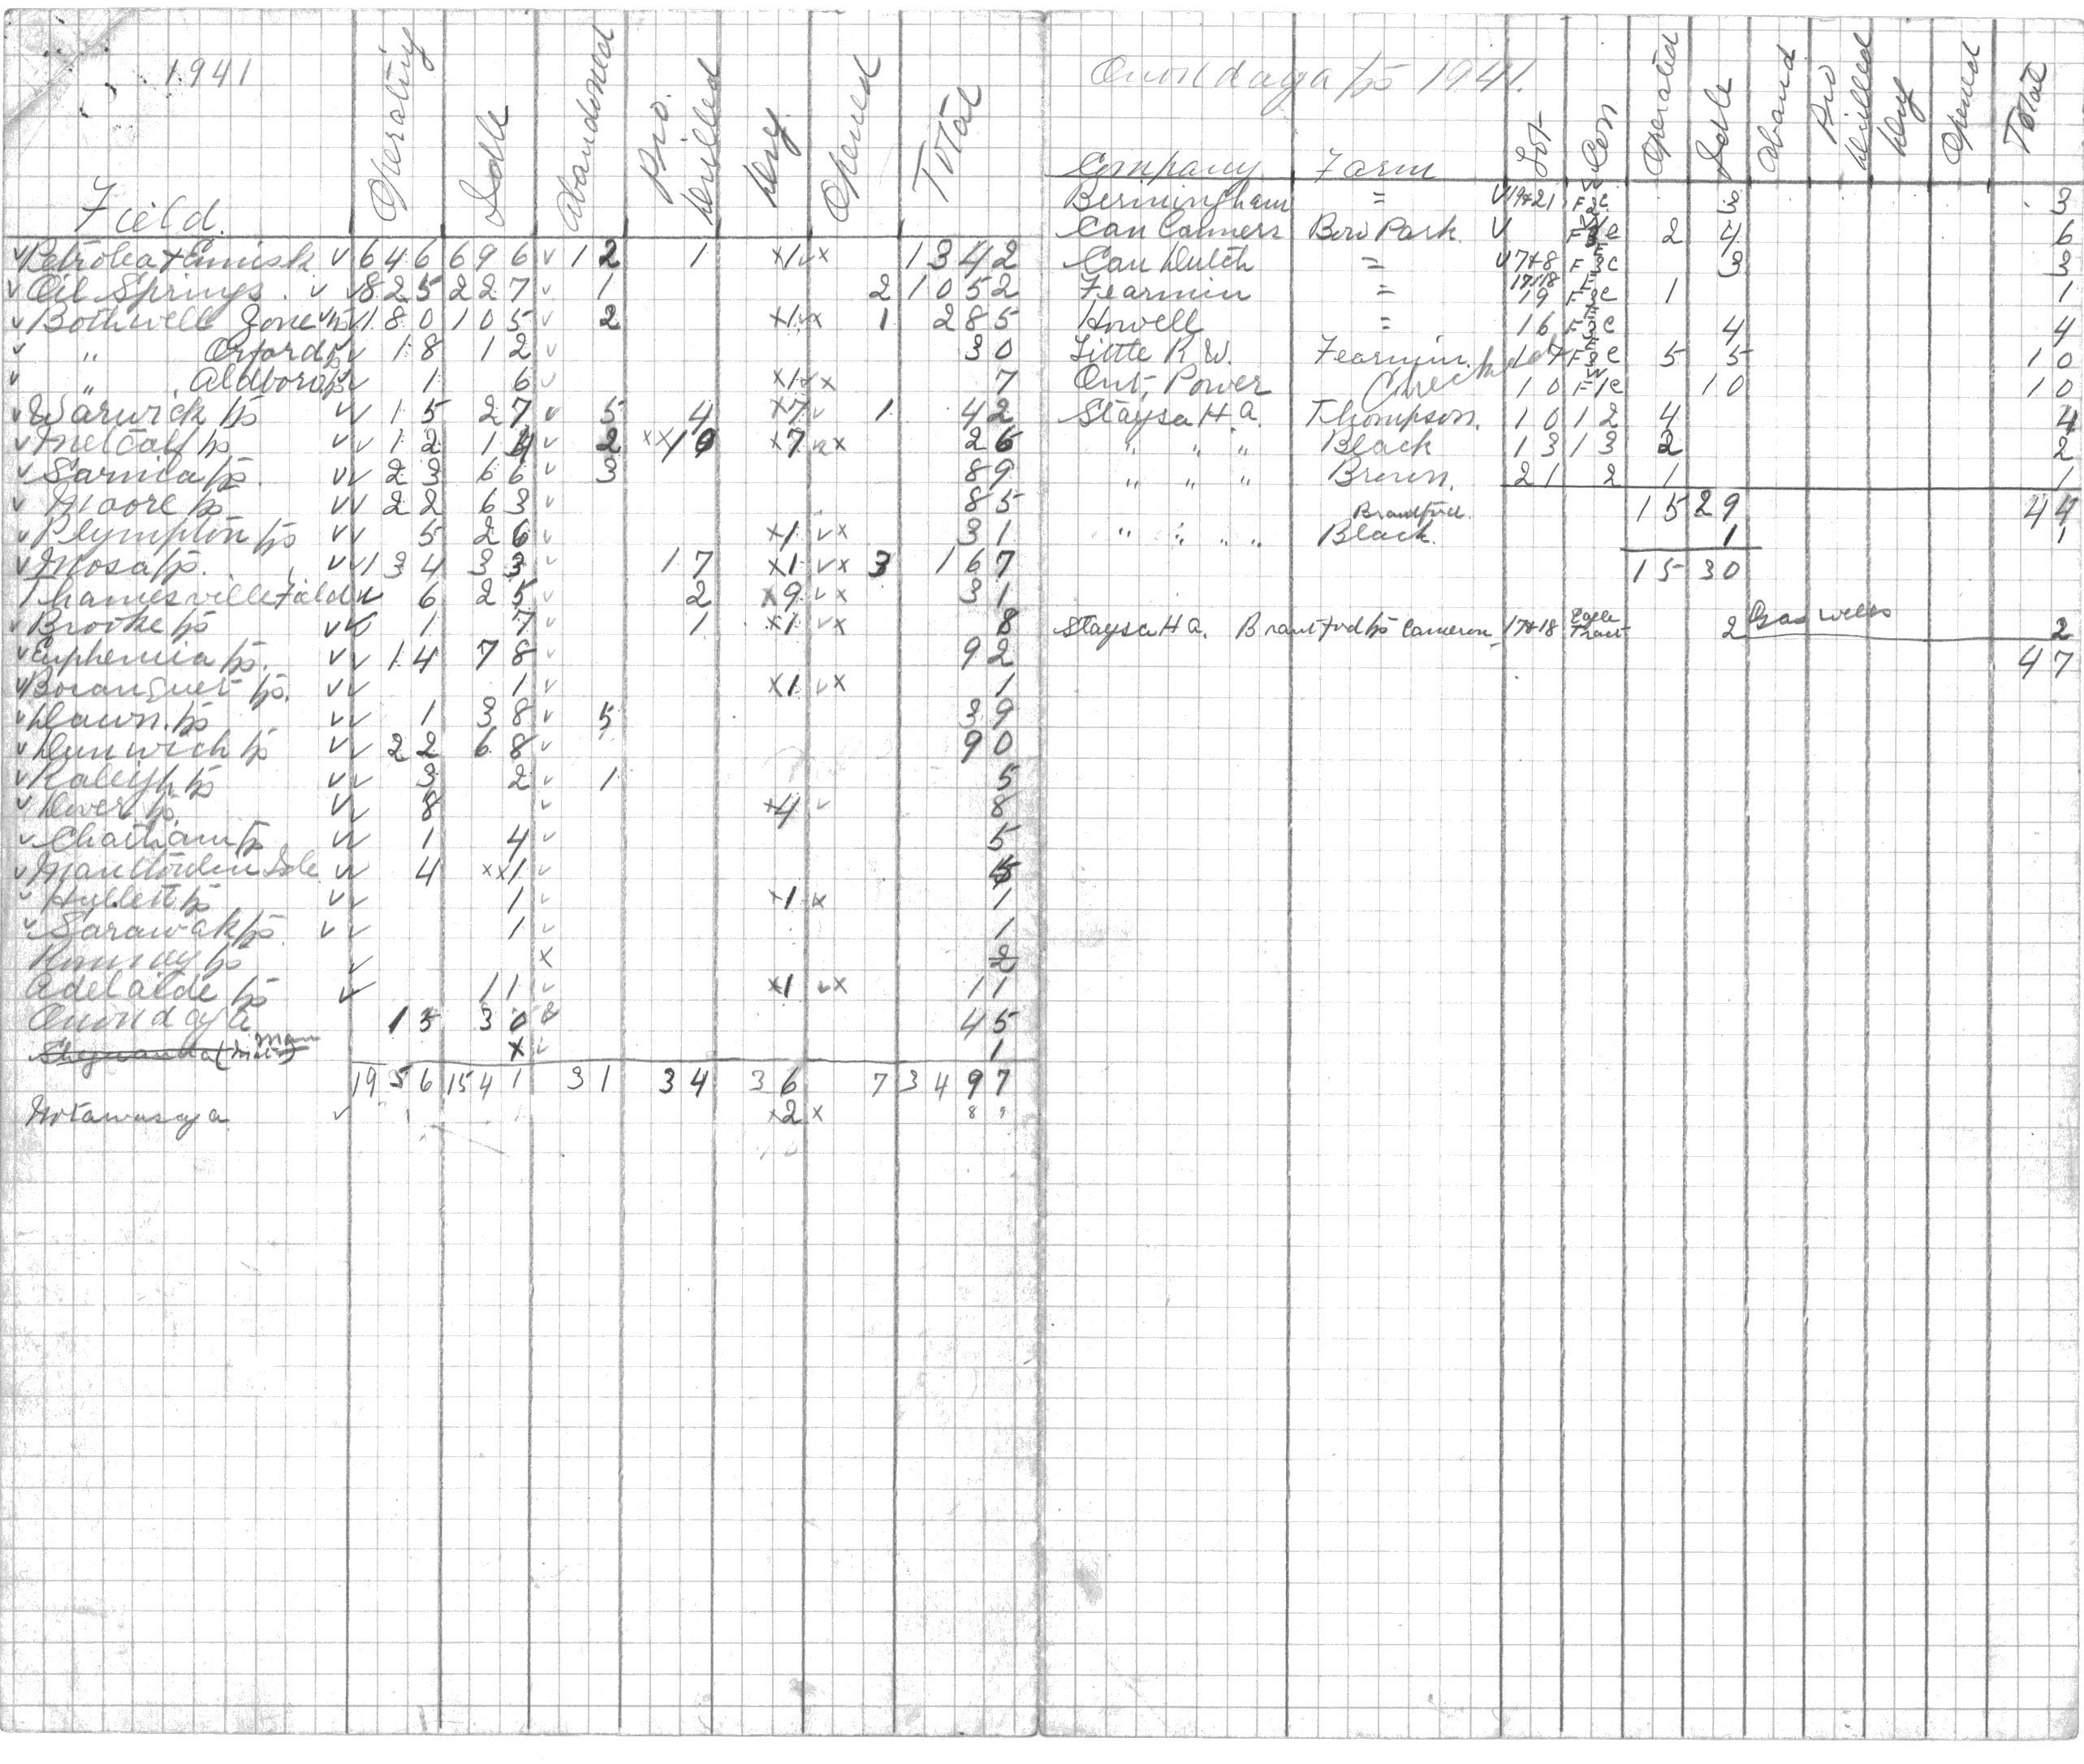 1941
Field. Operating Idle Abandoned Pro. Drilled Dry. Opened Total
✓ Petrolea + Ennisk. ✓ 646 696 ✓ 12 1 x1✓x 1342
✓ Oil Springs. ✓ ✓ 825 227 ✓ 1 2 1052
✓ Bothwell Zone tp ✓ 180 105 ✓ 2 x1✓x 1 285
✓ " Orford tp ✓ 18 12 ✓ 30
✓ " Aldboro tp ✓ 1 6 ✓ x1✓x 7
✓ Warwick tp ✓✓ 15 27 ✓ 5 4 x7✓ 1 42
✓ Metcalf tp ✓✓ 12 14 ✓ 2 xx10 x7✓xx 26
✓ Sarnia tp. ✓✓ 23 66 ✓ 3 89
✓ Moore tp ✓✓ 22 63 ✓ 85
✓ Plympton tp ✓✓ 5 26 ✓ x1 ✓x 31
✓ Mosa tp. ✓✓ 134 33 ✓ 17 x1 ✓x 3 167
Thamesville Field ✓✓ 6 25 ✓ 2 x9✓x 31
✓ Brooke tp ✓✓ 1 7 ✓ 1 x1 ✓x 8
✓ Euphemia tp. ✓✓ 14 78 ✓ 92
✓ Bosanquet tp. ✓✓ 1 ✓ x1 ✓x 1
✓ Dawn. tp ✓✓ 1 38 ✓ 5 39
✓ Dunwich tp ✓✓ 22 68 ✓ 90
✓ Raleigh. tp ✓✓ 3 2 ✓ 1 5
✓ Dover tp. ✓✓ 8 ✓ x4 ✓ 8
✓ Chatham tp ✓✓ 1 4 ✓ 5
✓ Manitoulin Isle ✓✓ 4 xx1 ✓ 5
✓ Hullett tp ✓✓ 1 ✓ x1 x 1
✓ Sarawak tp ✓✓ 1 ✓ 1
Romney tp ✓ x 2
Adelaide tp ✓ 11 ✓ x1 ✓x 11
Onondaga 15 30 ✓ 45
Sheguanda (Man x ✓ 1
1956 1541 31 34 36 7 3497
Notawasaga ✓ x2x
Onondaga tp 1941.
Company Farm Lot Con Operated Idle Aband Pro Drilled Dry Opened Total
Bermingham = ✓19+21 F2C 3 3
Can Canners Bow Park ✓ 2 4 6
Can Dutch = ✓7+8 F3C 3 3
Fearmin = 17+18 19 1 1
Howell = 16 4 4
Little R.W. Fearmin. 5 5 10
Ont. Power Check 10 10 10
Staysa H a. Thompson. 10 12 4 4
" " " Black 13 13 2 2
" " " Brown. 21 2 1 1
15 29 44
Brantford
" " " " Black. 1 1
15 30
Staysa H a. Brantford tp Cameron 17+18 Eagle Tract 2 Gas wells 2
47